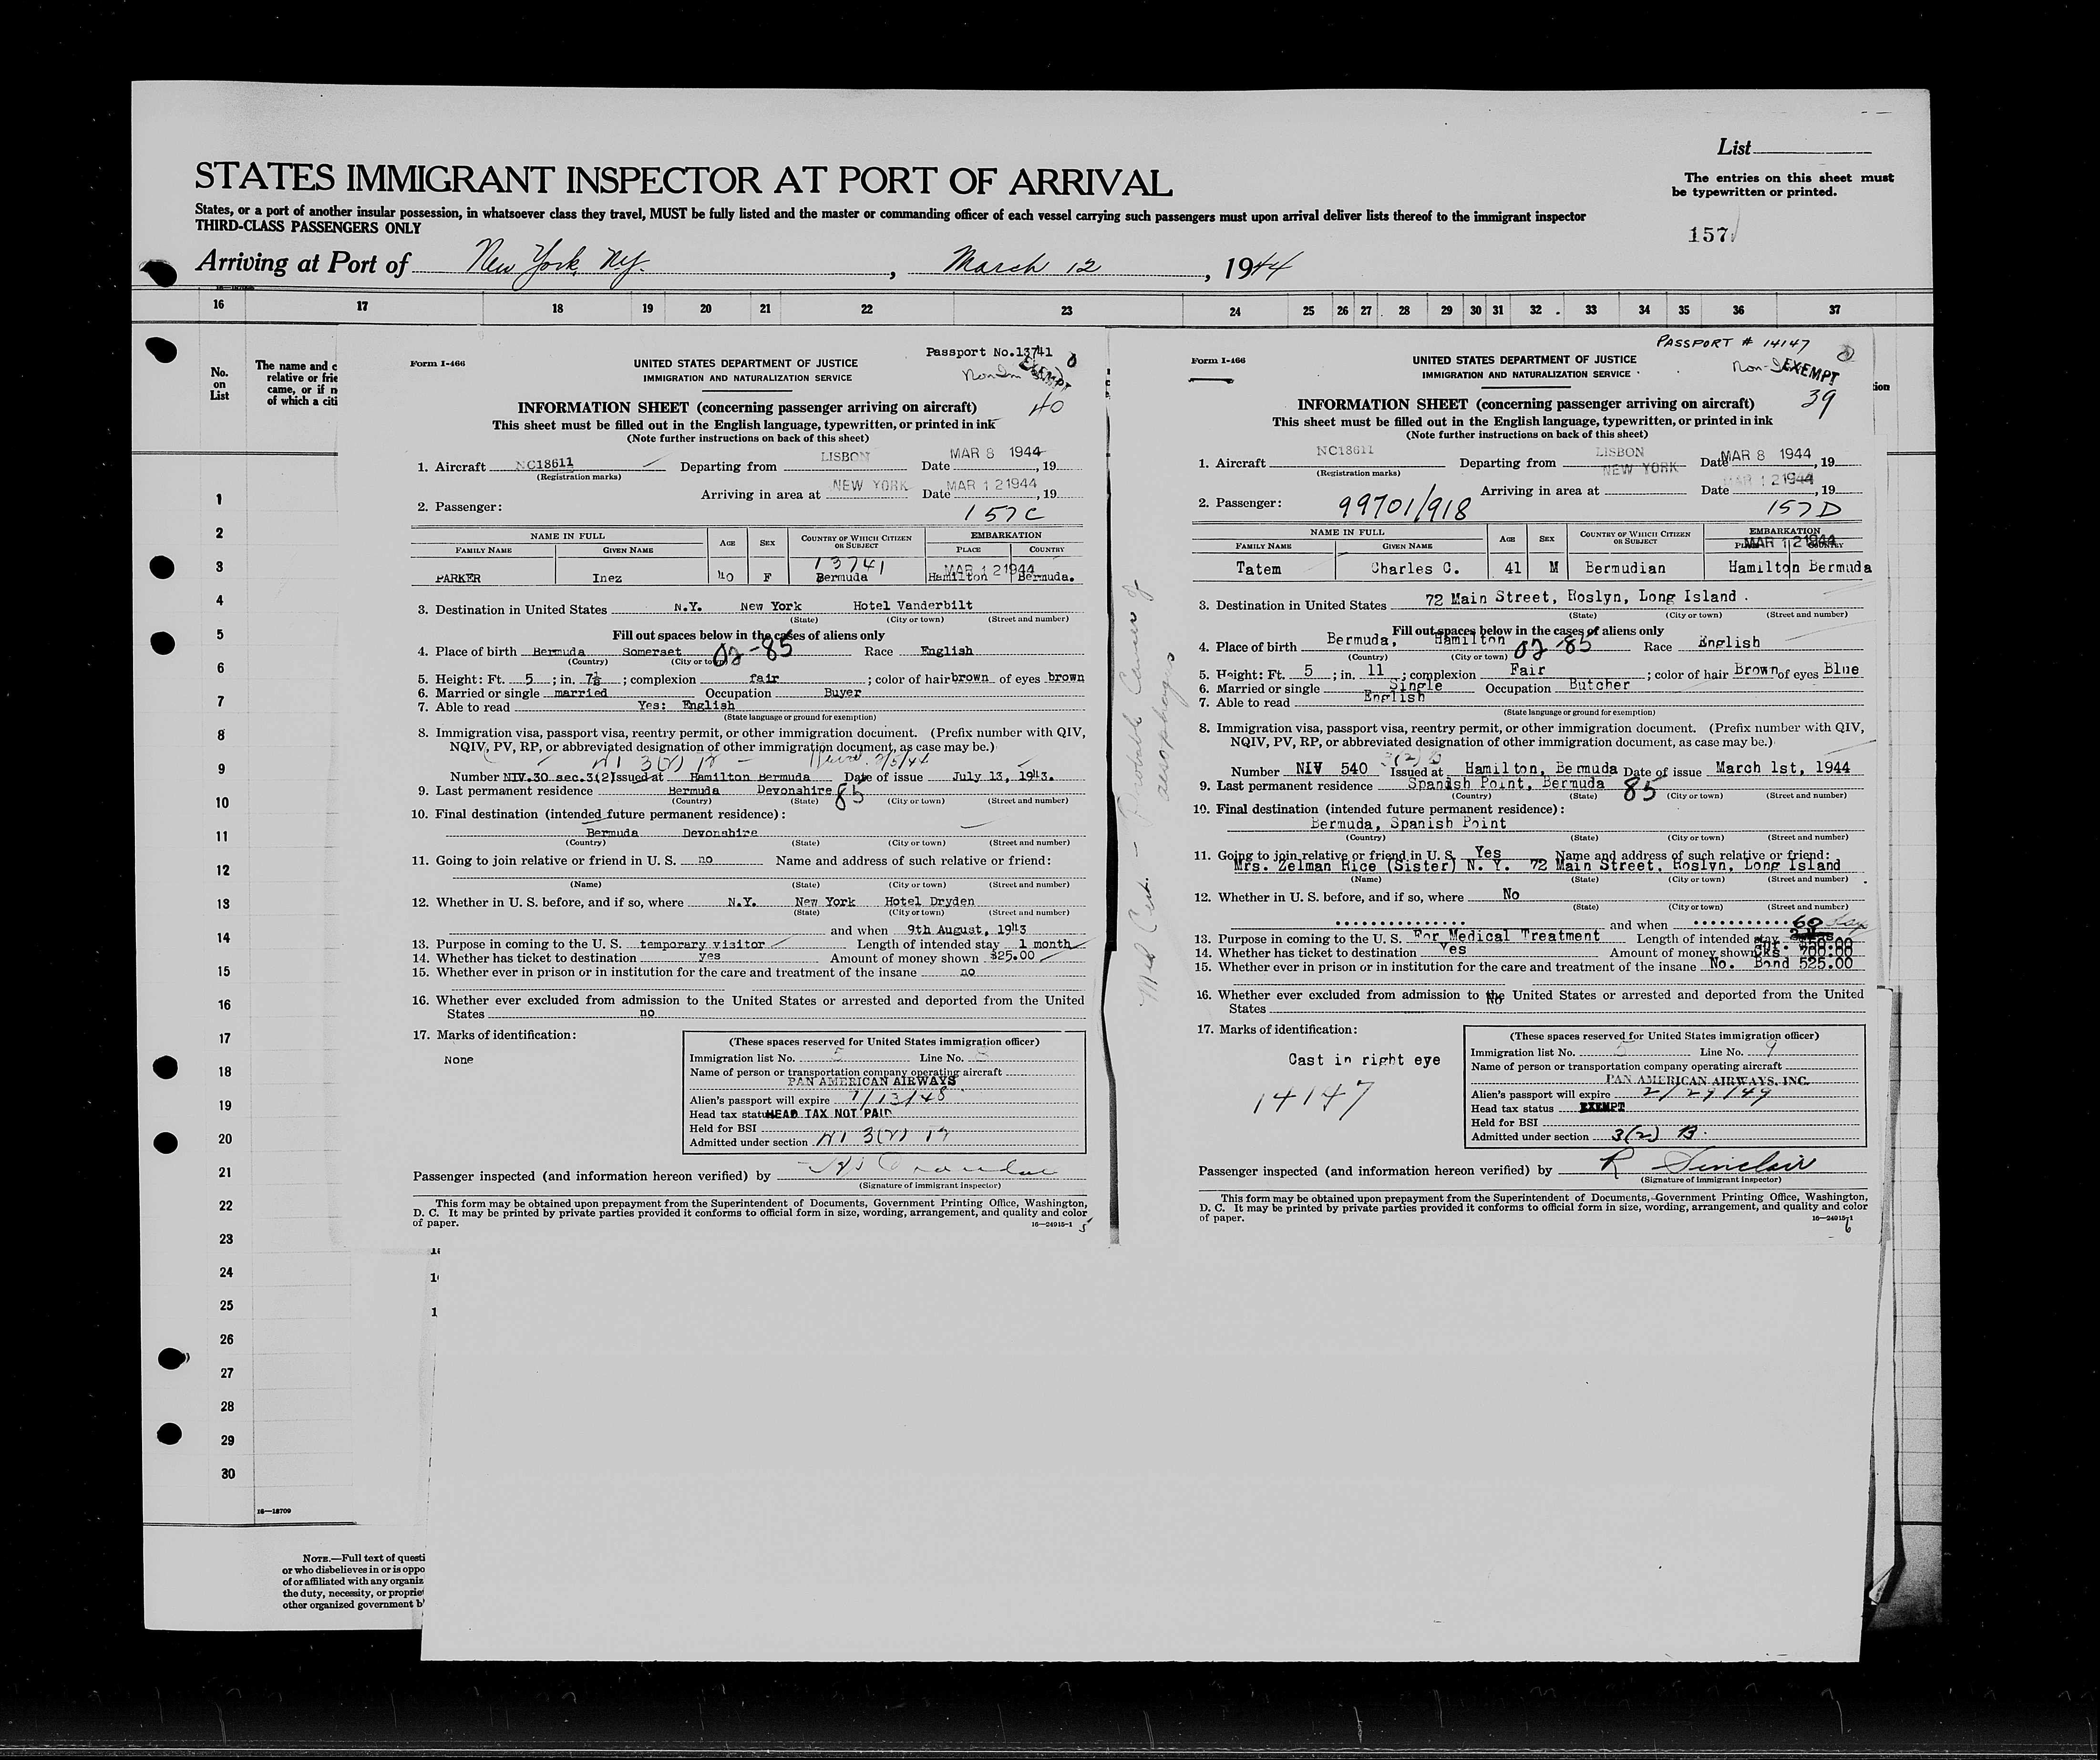 List
STATES IMMIGRANT INSPECTOR AT PORT OF ARRIVAL
The entries on this sheet must
be typewritten or printed.
States, or a port of another insular possession, in whatsoever class they travel, MUST be fully listed and the master or commanding officer of each vessel carrying such passengers must upon arrival deliver lists thereof to the immigrant inspector
THIRD-CLASS PASSENGERS ONLY
157
Arriving at Port of New York, N.Y. , March 12 , 1944
16 17 18 19 20 21 22 23 24 25 26 27 28 29 30 31 32 33 34 35 36 37
No.
on
List
The name and c
relative or frie
came, or if n
of which a citi
1
2
3
4
5
6
7
8
9
10
11
12
13
14
15
16
17
18
19
20
21
22
23
24
25
26
27
28
29
30
16—18709
NOTE.—Full text of questi
or who disbelieves in or is oppo
of or affiliated with any organiz
the duty, necessity, or proprie
other organized government b
Passport No.13741
Form I-466
UNITED STATES DEPARTMENT OF JUSTICE
IMMIGRATION AND NATURALIZATION SERVICE
EXEMPT
40
INFORMATION SHEET (concerning passenger arriving on aircraft)
This sheet must be filled out in the English language, typewritten, or printed in ink
(Note further instructions on back of this sheet)
1. Aircraft NC18611 Departing from LISBON Date MAR 8 1944, 19
(Registration marks)
Arriving in area at NEW YORK Date MAR 12 1944, 19
2. Passenger: 157C
NAME IN FULL AGE SEX COUNTRY OF WHICH CITIZEN OR SUBJECT EMBARKATION
FAMILY NAME GIVEN NAME PLACE COUNTRY
13741 MAR 12 1944
PARKER Inez 40 F Bermuda Hamilton Bermuda.
3. Destination in United States N.Y. New York Hotel Vanderbilt
(State) (City or town) (Street and number)
Fill out spaces below in the cases of aliens only
4. Place of birth Bermuda Somerset 02-85 Race English
(Country) (City or town)
5. Height: Ft. 5 ; in. 7½ ; complexion fair ; color of hair brown of eyes brown
6. Married or single married Occupation Buyer
7. Able to read Yes: English
(State language or ground for exemption)
8. Immigration visa, passport visa, reentry permit, or other immigration document. (Prefix number with QIV,
NQIV, PV, RP, or abbreviated designation of other immigration document, as case may be.)
Number NIV.30 sec.3(2) Issued at Hamilton Bermuda Date of issue July 13, 1943.
9. Last permanent residence Bermuda Devonshire 85
(Country) (State) (City or town) (Street and number)
10. Final destination (intended future permanent residence):
Bermuda Devonshire
(Country) (State) (City or town) (Street and number)
11. Going to join relative or friend in U. S. no Name and address of such relative or friend:
(Name) (State) (City or town) (Street and number)
12. Whether in U. S. before, and if so, where N.Y. New York Hotel Dryden
(State) (City or town) (Street and number)
and when 9th August, 1943
13. Purpose in coming to the U. S. temporary visitor Length of intended stay 1 month
14. Whether has ticket to destination yes Amount of money shown $25.00
15. Whether ever in prison or in institution for the care and treatment of the insane no
16. Whether ever excluded from admission to the United States or arrested and deported from the United
States no
17. Marks of identification:
None
(These spaces reserved for United States immigration officer)
Immigration list No. 5 Line No. 8
Name of person or transportation company operating aircraft
PAN AMERICAN AIRWAYS
Alien's passport will expire 7/13/48
Head tax status HEAD TAX NOT PAID
Held for BSI
Admitted under section
Passenger inspected (and information hereon verified) by
(Signature of immigrant inspector)
This form may be obtained upon prepayment from the Superintendent of Documents, Government Printing Office, Washington,
D. C. It may be printed by private parties provided it conforms to official form in size, wording, arrangement, and quality and color
of paper. 16—24915-1
5
PASSPORT # 14147
Form I-466
UNITED STATES DEPARTMENT OF JUSTICE
IMMIGRATION AND NATURALIZATION SERVICE
Non- EXEMPT
39
INFORMATION SHEET (concerning passenger arriving on aircraft)
This sheet must be filled out in the English language, typewritten, or printed in ink
(Note further instructions on back of this sheet)
1. Aircraft NC18611 Departing from LISBON Date MAR 8 1944, 19
(Registration marks)
Arriving in area at NEW YORK Date MAR 12 1944, 19
2. Passenger: 99701/918 157D
NAME IN FULL AGE SEX COUNTRY OF WHICH CITIZEN OR SUBJECT EMBARKATION
FAMILY NAME GIVEN NAME PLACE COUNTRY
MAR 12 1944
Tatem Charles C. 41 M Bermudian Hamilton Bermuda
3. Destination in United States 72 Main Street, Roslyn, Long Island.
(State) (City or town) (Street and number)
Fill out spaces below in the cases of aliens only
4. Place of birth Bermuda, Hamilton 02-85 Race English
(Country) (City or town)
5. Height: Ft. 5 ; in. 11 ; complexion Fair ; color of hair Brown of eyes Blue
6. Married or single Single Occupation Butcher
7. Able to read English
(State language or ground for exemption)
8. Immigration visa, passport visa, reentry permit, or other immigration document. (Prefix number with QIV,
NQIV, PV, RP, or abbreviated designation of other immigration document, as case may be.)
Number NIV 540 3(2) B Issued at Hamilton, Bermuda Date of issue March 1st, 1944
9. Last permanent residence Spanish Point, Bermuda 85
(Country) (State) (City or town) (Street and number)
10. Final destination (intended future permanent residence):
Bermuda, Spanish Point
(Country) (State) (City or town) (Street and number)
11. Going to join relative or friend in U. S. Yes Name and address of such relative or friend:
Mrs. Zelman Rice (Sister) N. Y. 72 Main Street, Roslyn, Long Island
(Name) (State) (City or town) (Street and number)
12. Whether in U. S. before, and if so, where No
(State) (City or town) (Street and number)
and when
60 days
13. Purpose in coming to the U. S. For Medical Treatment Length of intended stay
14. Whether has ticket to destination Yes Amount of money shown
15. Whether ever in prison or in institution for the care and treatment of the insane No. Bond 525.00
16. Whether ever excluded from admission to the United States or arrested and deported from the United
States No
17. Marks of identification:
Cast in right eye
14147
(These spaces reserved for United States immigration officer)
Immigration list No. 5 Line No. 9
Name of person or transportation company operating aircraft
PAN AMERICAN AIRWAYS, INC.
Alien's passport will expire 2/29/49
Head tax status EXEMPT
Held for BSI
Admitted under section 3(2) B.
Passenger inspected (and information hereon verified) by R Sinclair
(Signature of immigrant inspector)
This form may be obtained upon prepayment from the Superintendent of Documents, Government Printing Office, Washington,
D. C. It may be printed by private parties provided it conforms to official form in size, wording, arrangement, and quality and color
of paper. 16—24915-1
6
Med Cert. - Probable Cancer of
aesophagus